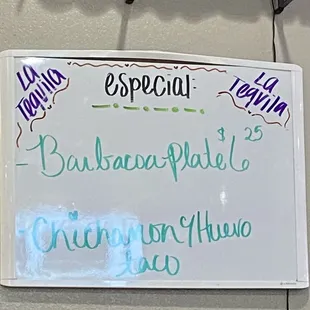 La Tequila
especial:
La Tequila
- Barbacoa Plate $6.25
- Chicharron Y Huevo
taco